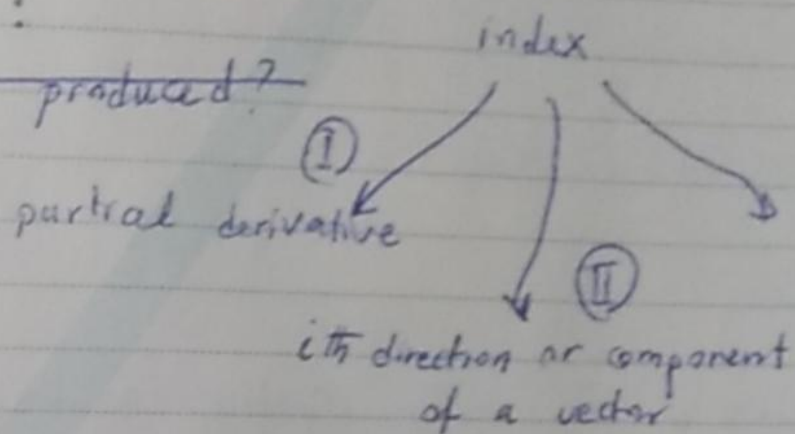 index
produced?
I
partial derivative
II
ith direction or component
of a vector